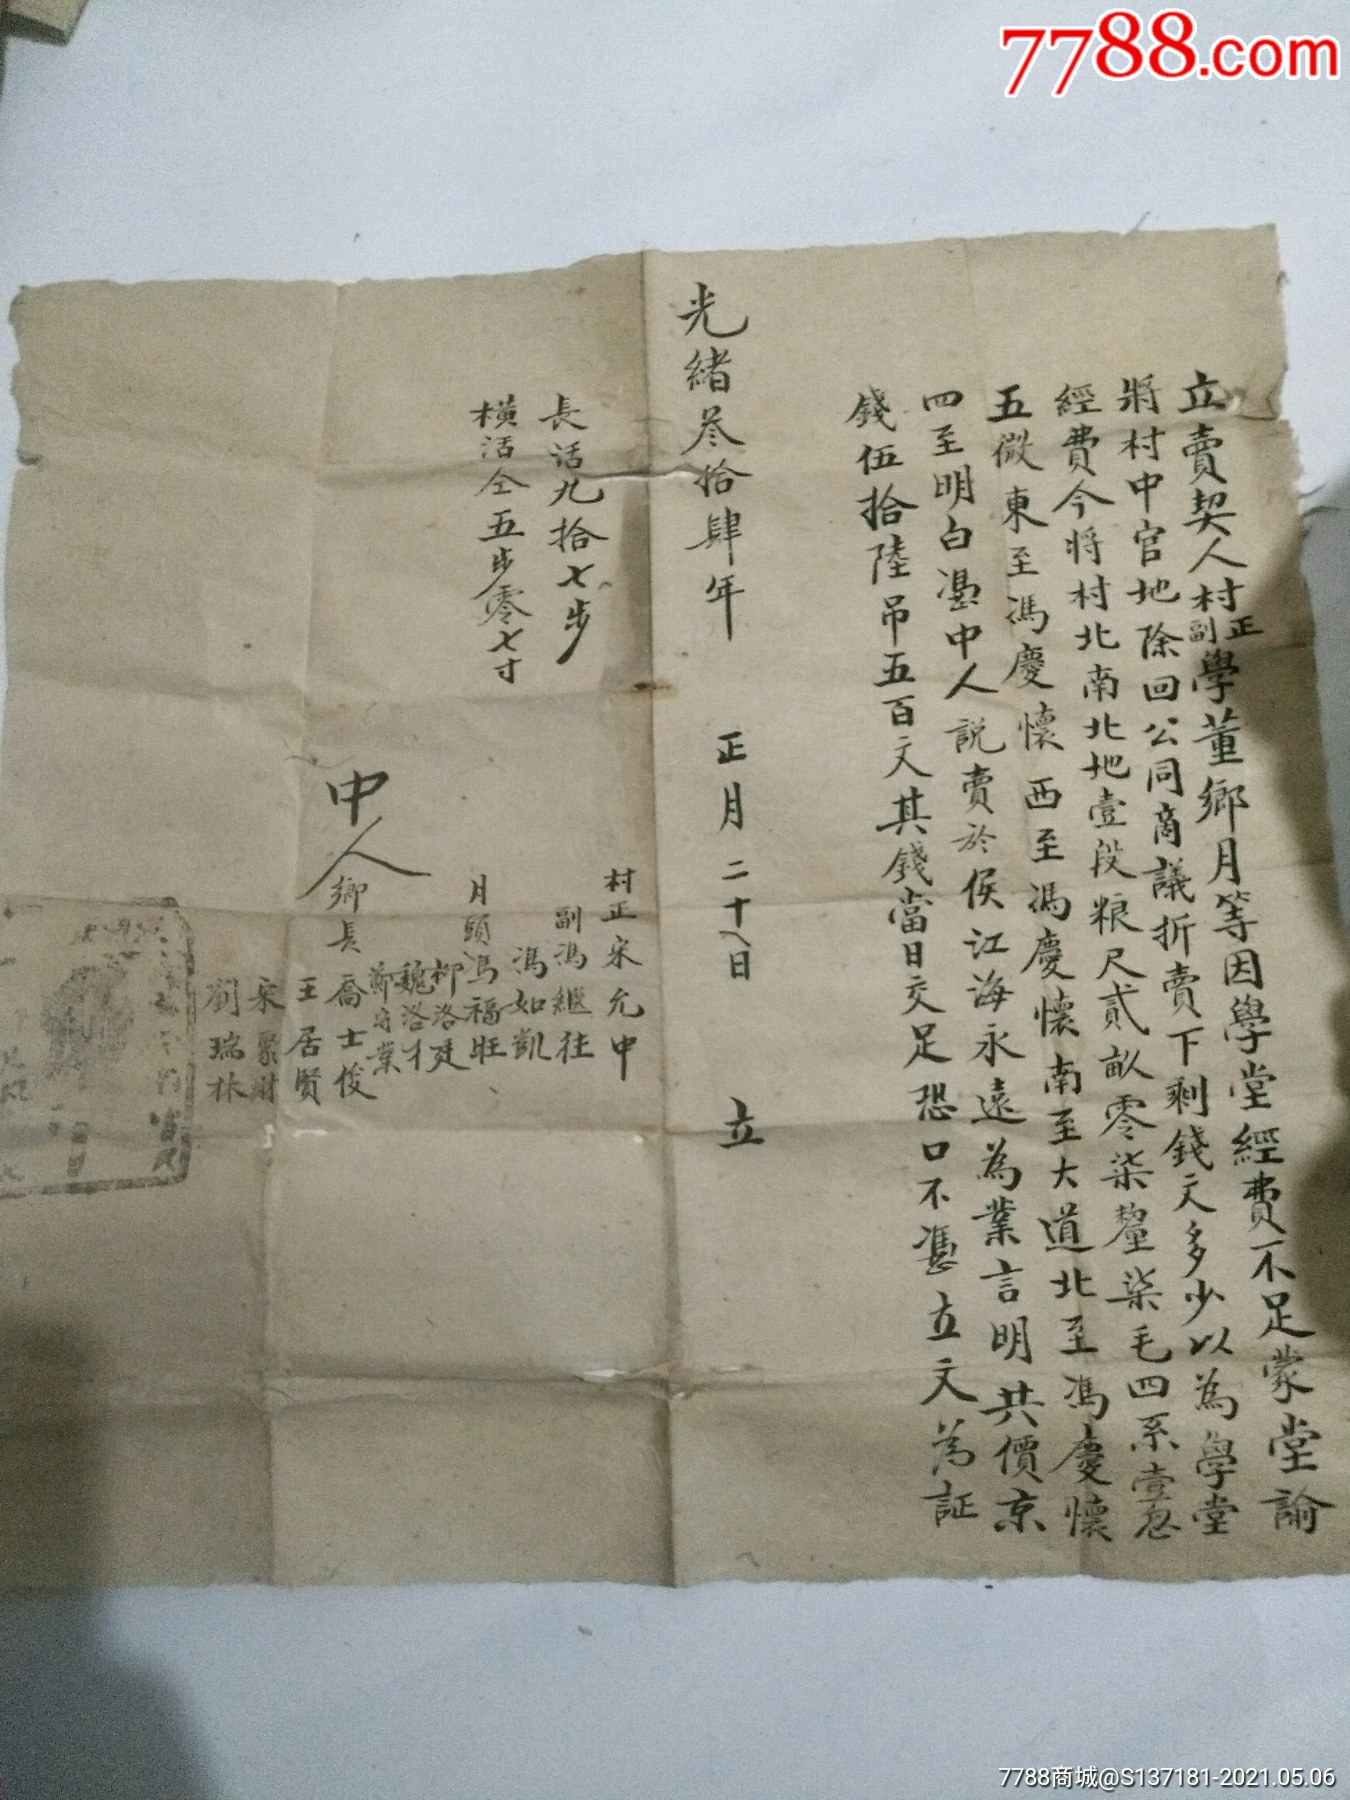 7788.com
立賣契人村正副學董鄉月等因學堂經費不足蒙堂諭
將村中官地除回公同商議折賣下剩錢文多少以為學堂
經費今將村北南北地壹段粮尺貳畝零柒釐柒毛四系壹忽
五微東至馮慶懷西至馮慶懷南至大道北至馮慶懷
四至明白憑中人説賣於侯江海永遠為業言明共價京
錢伍拾陸吊五百文其錢當日交足恐口不憑立文為証
光緒叄拾肆年 正月二十八日 立
長活九拾七步
橫活仝五步零七寸
村正宋允中
副馮繼往
馮如凱
月頭馮福旺
柳洛廷
魏洛才
鄭守業
中人
鄉長喬士俊
王居賢
宋聚財
劉瑞林
7788商城@S137181-2021.05.06